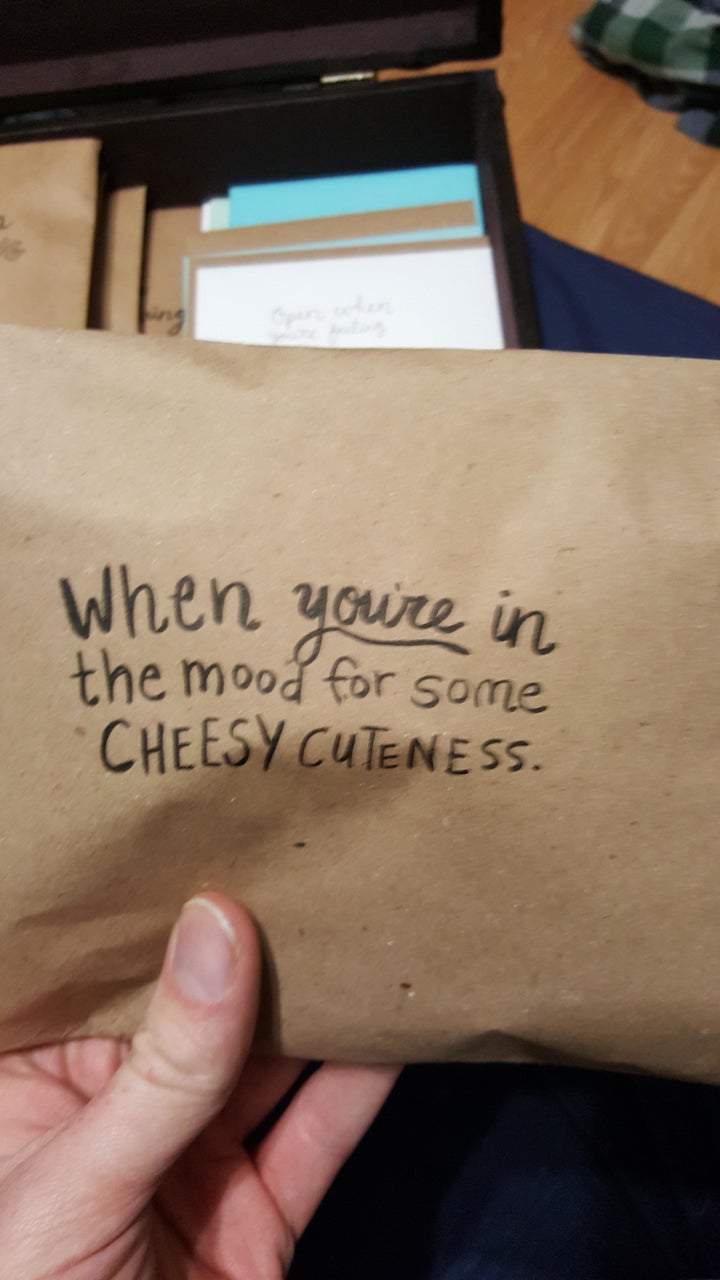 ing
Open when
you're feeling
When you're in
the mood for some
CHEESY CUTENESS.